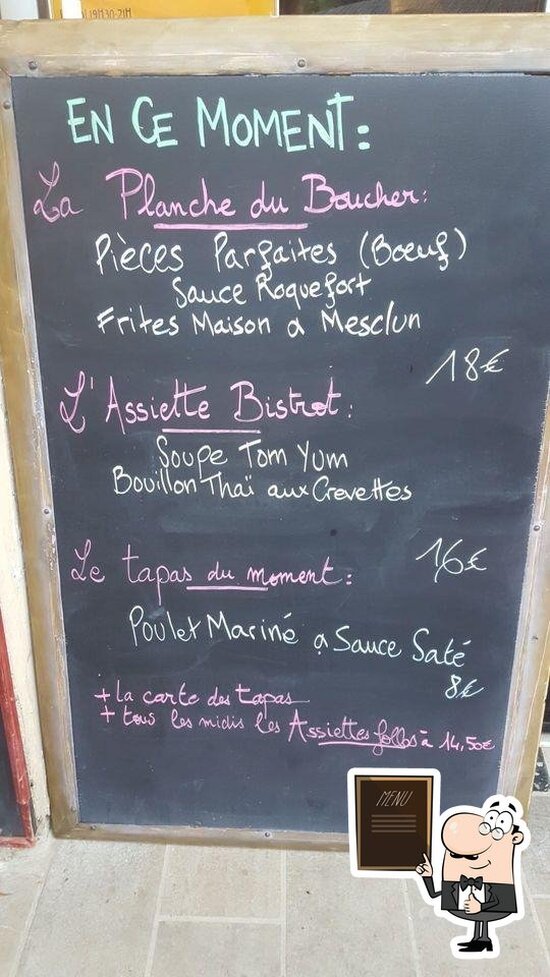 19H30-21H
EN CE MOMENT:
La Planche du Boucher:
Pièces Parfaites (Bœuf)
Sauce Roquefort
Frites Maison & Mesclun
18€
L'Assiette Bistrot:
Soupe Tom Yum
Bouillon Thaï aux Crevettes
16€
Le tapas du moment:
Poulet Mariné & Sauce Saté
8€
+ la carte des tapas
+ tous les midis les Assiettes folles à 14,50€
MENU